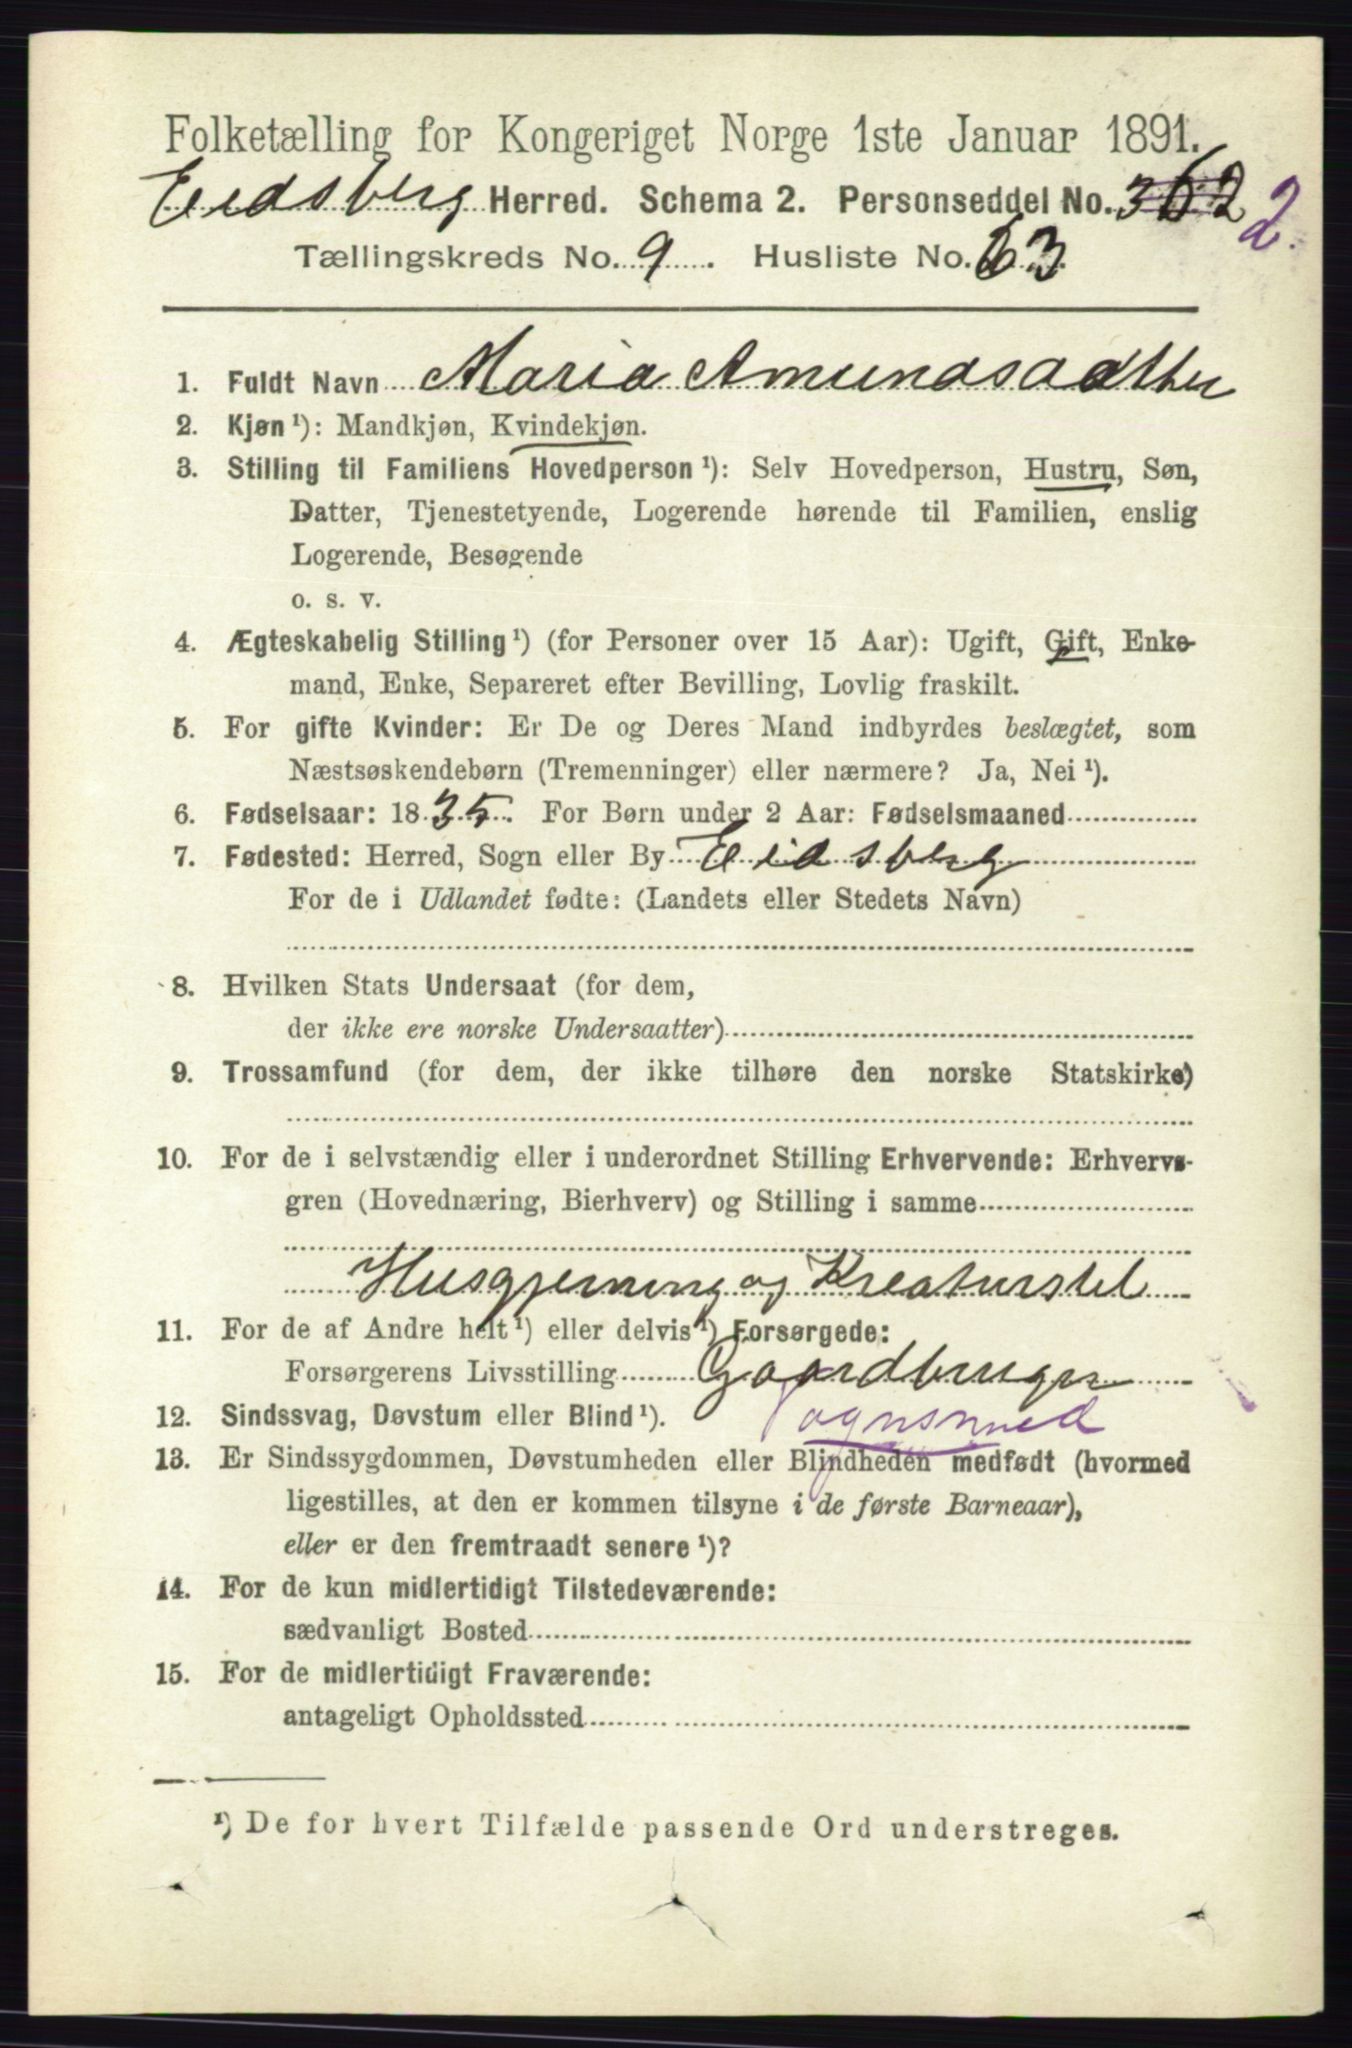 Folketælling for Kongeriget Norge 1ste Januar 1891.
Eidsberg Herred. Schema 2. Personseddel No. 362 2.
Tællingskreds No. 9. Husliste No. 63.
1. Fuldt Navn Maria Amundsdatter
2. Kjøn¹): Mandkjøn, Kvindekjøn.
3. Stilling til Familiens Hovedperson¹): Selv Hovedperson, Hustru, Søn,
Datter, Tjenestetyende, Logerende hørende til Familien, enslig
Logerende, Besøgende
o. s. v.
4. Ægteskabelig Stilling¹) (for Personer over 15 Aar): Ugift, Gift, Enke-
mand, Enke, Separeret efter Bevilling, Lovlig fraskilt.
5. For gifte Kvinder: Er De og Deres Mand indbyrdes beslægtet, som
Næstsøskendebørn (Tremenninger) eller nærmere? Ja, Nei¹).
6. Fødselsaar: 1835. For Børn under 2 Aar: Fødselsmaaned
7. Fødested: Herred, Sogn eller By Eidsberg
For de i Udlandet fødte: (Landets eller Stedets Navn)
8. Hvilken Stats Undersaat (for dem,
der ikke ere norske Undersaatter)
9. Trossamfund (for dem, der ikke tilhøre den norske Statskirke)
10. For de i selvstændig eller i underordnet Stilling Erhvervende: Erhvervs-
gren (Hovednæring, Bierhverv) og Stilling i samme
Husgjerning og Kreaturstel
11. For de af Andre helt¹) eller delvis¹) Forsørgede:
Forsørgerens Livsstilling Gaardbruger
Vognsmed
12. Sindssvag, Døvstum eller Blind¹).
13. Er Sindssygdommen, Døvstumheden eller Blindheden medfødt (hvormed
ligestilles, at den er kommen tilsyne i de første Barneaar),
eller er den fremtraadt senere¹)?
14. For de kun midlertidigt Tilstedeværende:
sædvanligt Bosted
15. For de midlertidigt Fraværende:
antageligt Opholdssted
¹) De for hvert Tilfælde passende Ord understreges.